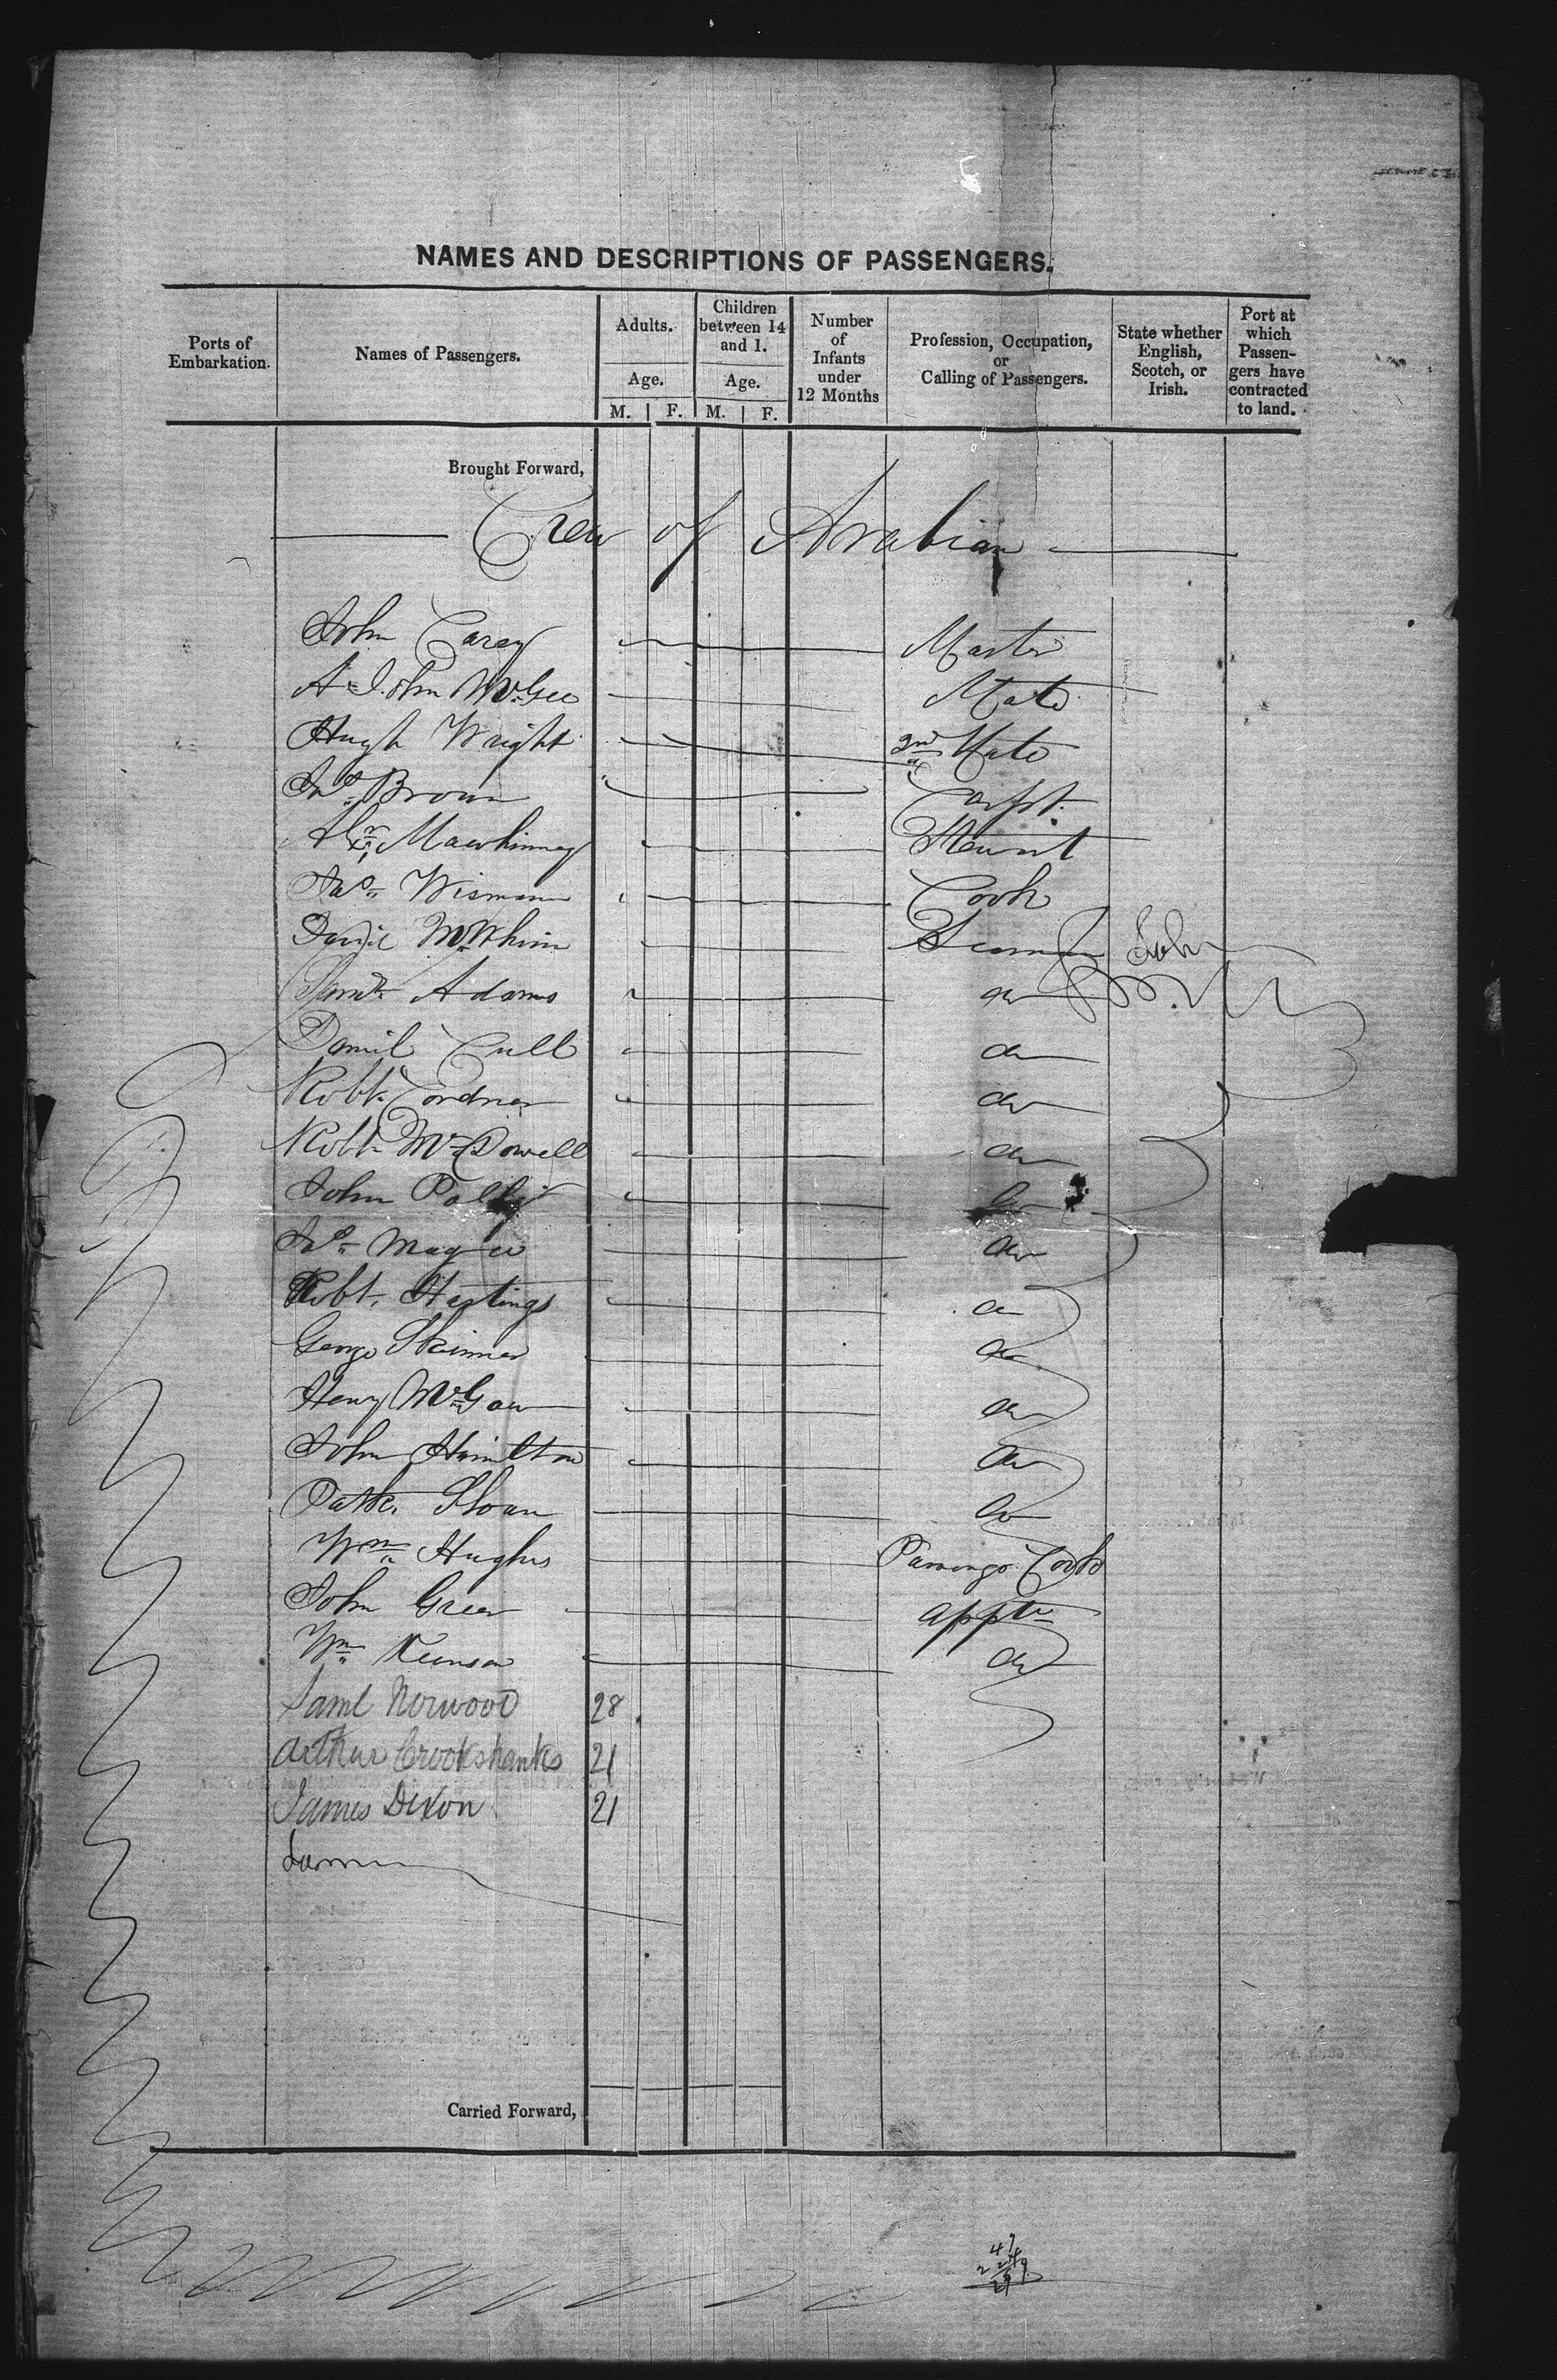 NAMES AND DESCRIPTIONS OF PASSENGERS.
Ports of Embarkation.
Names of Passengers.
Adults.
Age.
M. F.
Children between 14 and 1.
Age.
M. F.
Number of Infants under 12 Months
Profession, Occupation, or Calling of Passengers.
State whether English, Scotch, or Irish.
Port at which Passengers have contracted to land.
Brought Forward,
Crew of Arabian
John Carey Master
John McGee Mate
Hugh Wright 2nd Mate
Jas Brown Carpt.
Alexr Mawhinney Stewart
Jas Wisman Cook
David McWhinn Seaman John
Saml Adams do
Daniel Cull do
Robt. Cordner do
Robt McDowell do
John do
Jas Magee do
Robt. Hastings do
George Skinner do
Henry McGaw do
John Hamilton do
Patk. Sloan do
Wm Hughes Passenger Cook
John Greer appte
Wm do
Saml Norwood 28
Arthur Crookshanks 21
James Dixon 21
Carried Forward,